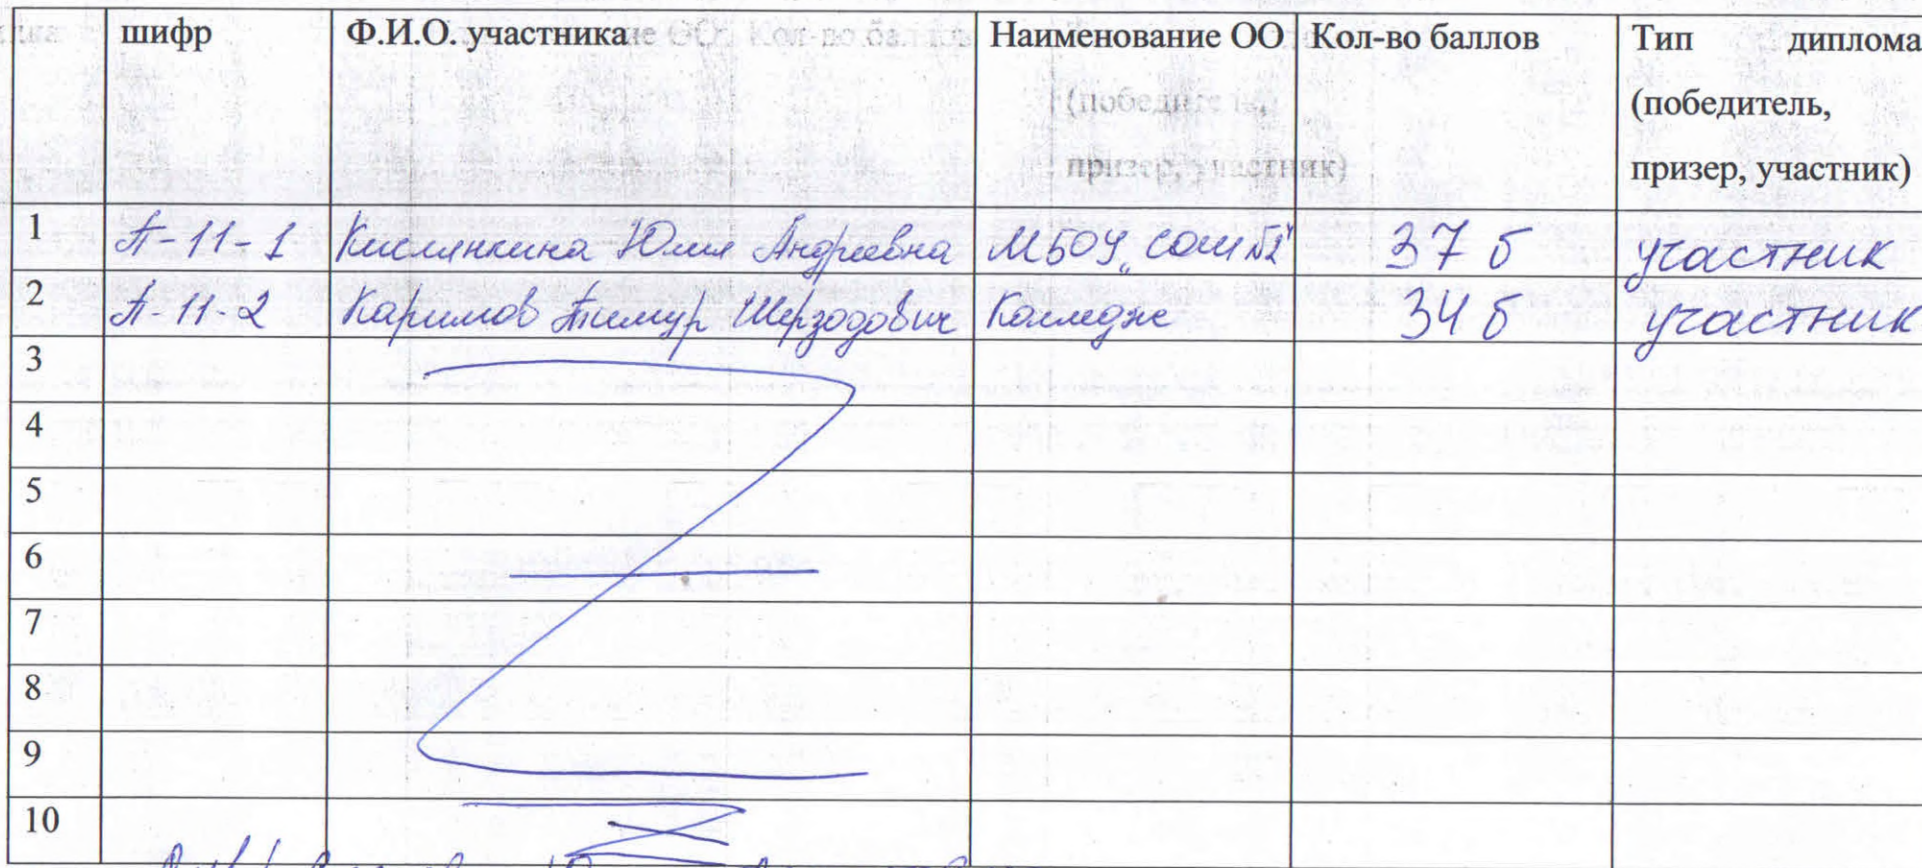 шифр Ф.И.О. участника Наименование ОО Кол-во баллов Тип диплома
(победитель,
призер, участник)
1 А-11-1 Кислинкина Юлия Андреевна МБОУ „СОШ №2" 37 б участник
2 А-11-2 Каримов Тимур Шерзодович Колледж 34 б участник
3
4
5
6
7
8
9
10